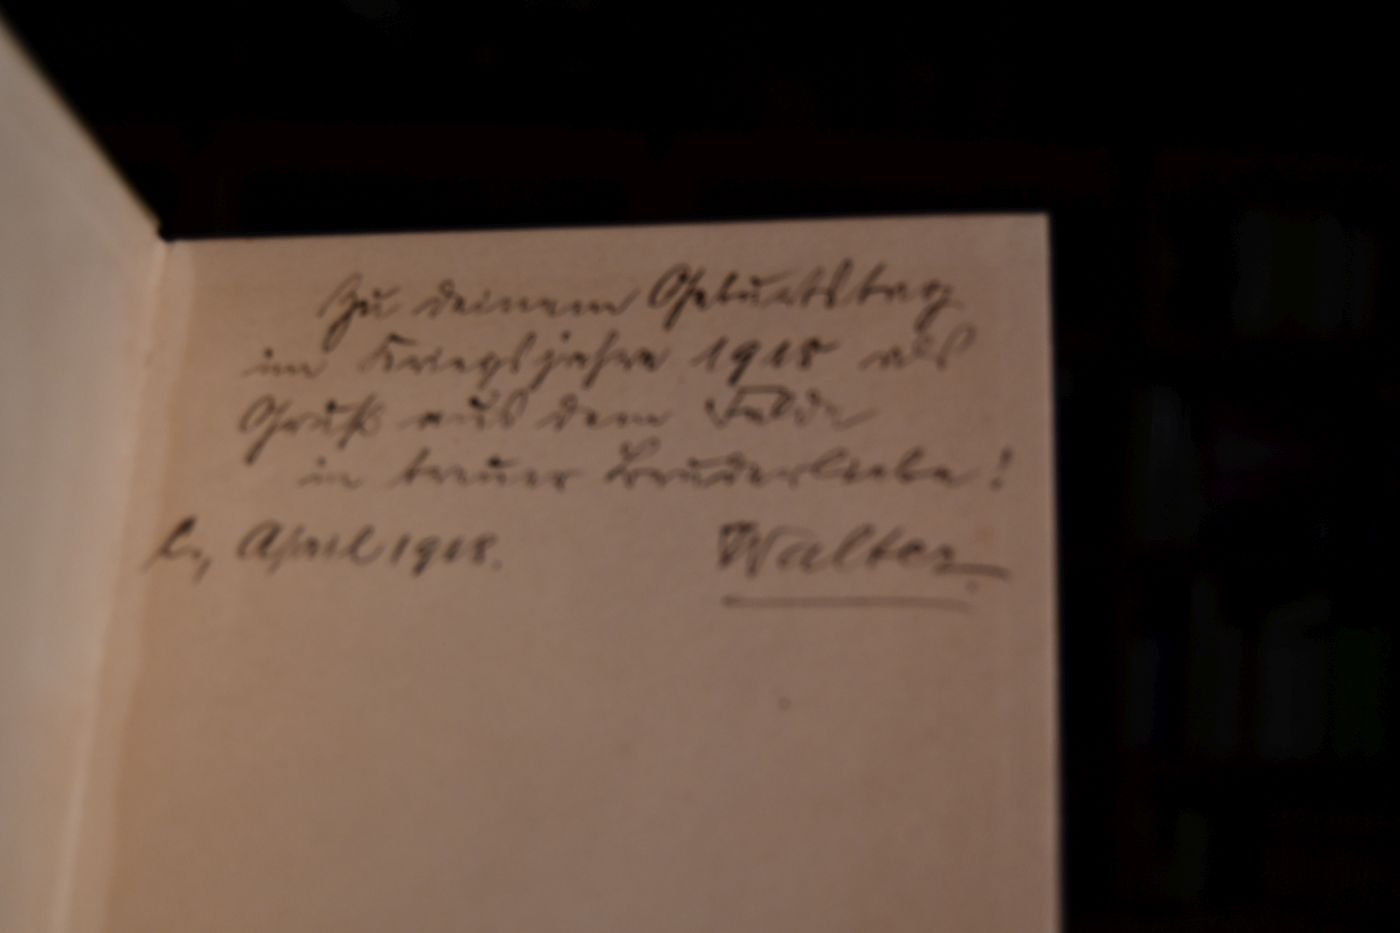 Zu deinem Geburtstag
im Kriegsjahre 1918 als
Gruß aus dem Felde
in treuer Bruderliebe!
April 1918. Walter.